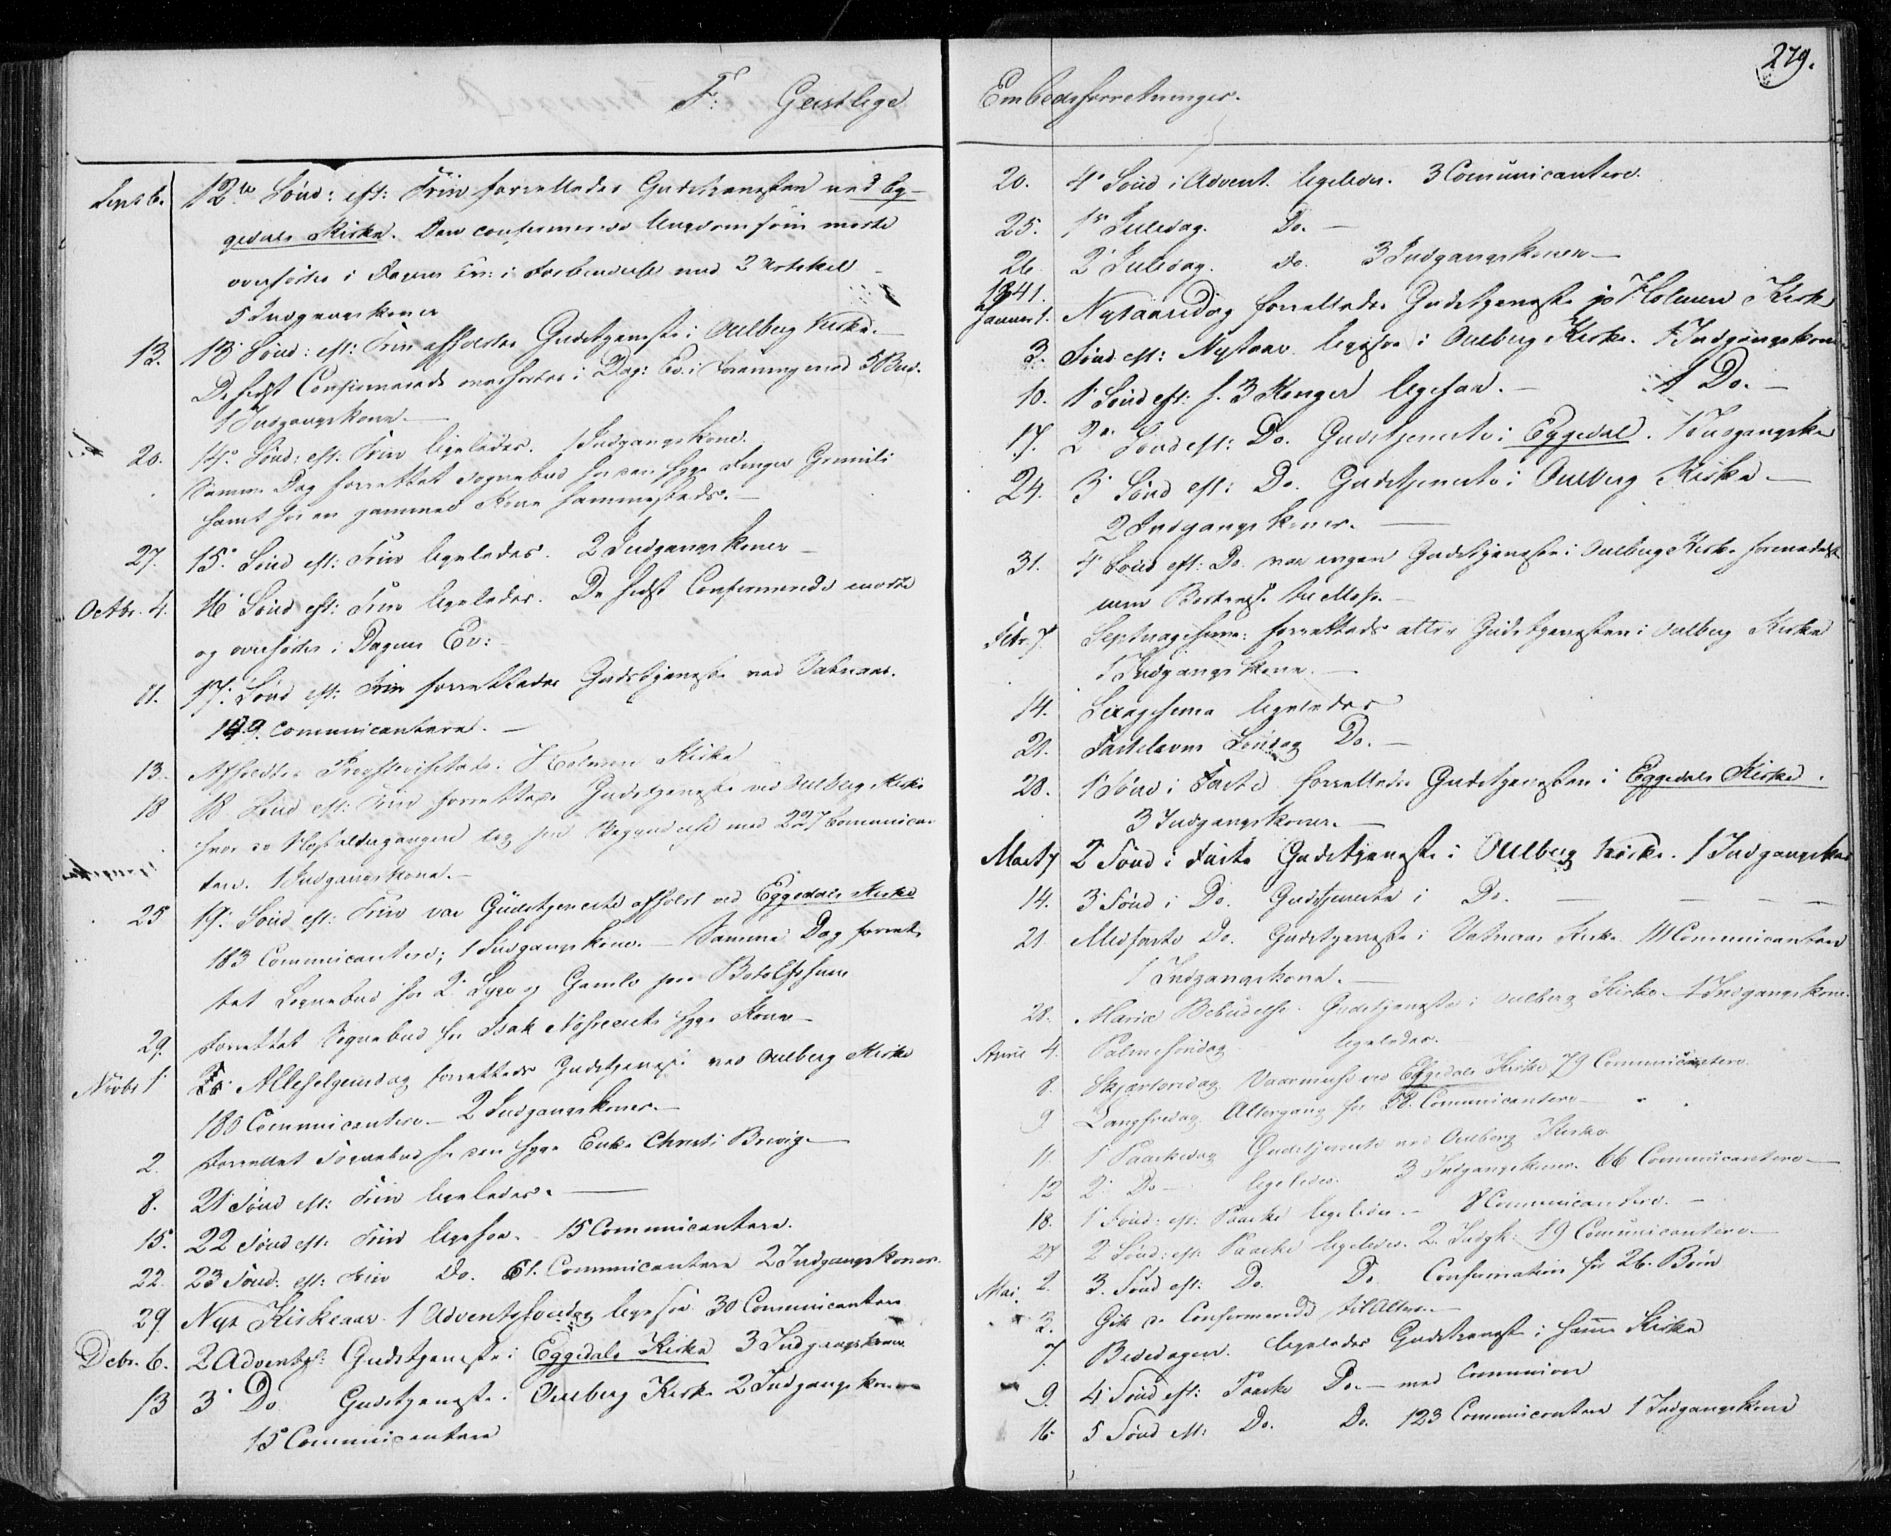 F: Geistlige
Sept 6. 12te Sønd: eft: Trin forrettedes Gudstjenesten ved Eg-
gedals Kirke. Den confirmerede Ungdom som mødte
overhørtes i Dagens Ev: i Forbindelse med 2 Artikel
5 Indgangskoner
13. 13 Sønd: eft: Trin afholdtes Gudstjeneste i Oulberg Kirke.
De sidst Confirmerede overhørtes i Dag: Ev: i Forening med 5 Bud.
1 Indgangskone.
20. 14. Sønd: eft: Trin ligeledes. 1 Indgangskone.
Samme Dag forrettet Sognebud for den syge
samt for en gammel Kone sammesteds.
27. 15. Sønd eft: Trin ligeledes. 2 Indgangskoner
Octbr. 4. 16 Sønd eft: Trin ligeledes. De sidst Confirmerede mødte
og overhørtes i Dagens Ev:
11. 17. Sønd eft: Trin forrettedes Gudstjeneste ved Vatnaas.
149 communicantere.
13. Afholdtes Provstevisitats. Holmen Kirke
18 18 Sønd eft: Trin forrettedes Gudstjeneste ved Oulberg Kirke
hvor Høstaltergangen tog sin Begyndelse med 227 Communican
tere. 1 Indgangskone.
25 19. Sønd eft: Trin var Gudstjeneste afholdt ved Eggedals Kirke
183 Communicantere; 1 Indgangskone. Samme Dag forret
tet Sognebud for 2 Syge og Gamle
29. Forrettet Sognebud for Isak syge Kone
Novbr 1 Allehelgensdag forrettedes Gudstjeneste ved Oulberg Kirke
180 Communicantere 2 Indgangskoner.
2. Forrettet Sognebud for den syge Enke Christi
8. 21 Sønd eft: Trin ligeledes.
15. 22 Sønd eft: Trin ligesaa. 15 Communicantere.
22. 23 Sønd: eft: Trin Do. 61. Communicantere 2 Indgangskoner.
29. Nyt Kirkeaar. 1 Adventssøndag ligesaa 30 Communicantere
Debr. 6. 2 Advents: Gudstjeneste i Eggedals Kirke 3 Indgangskoner
13 3 Do Gudstjeneste. Oulberg Kirke 2 Indgangskoner
15 Communicantere
279.
Embedsforretninger.
20. 4. Sønd i Advent. ligeledes. 3 Comunicantere.
25. 1ste Juledag. Do.
26 2 Juledag. Do. 3 Indgangskoner
1841.
Januar 1. Nytaarsdag forrettedes Gudstjeneste Holmen Kirke
3. Sønd eft: Nytaar ligesaa i Oulberg Kirke. 1 Indgangskone
10. 1 Sønd eft: h. 3 Konger ligesaa. 1 Do.
17. 2. Sønd eft: Do. Gudstjeneste i Eggedal. 1 Indgangsko
24. 3 Sønd eft: Do. Gudstjeneste i Oulberg Kirke
2 Indgangskoner.
31. 4 Sønd eft: Do. var ingen Gudstjeneste i Oulberg Kirke formedelst
min Bortreise
Febr. 7. Septuagesima: forrettedes atter Gudstjenesten i Oulberg Kirke
1 Indgangskone.
14. Sexagesima ligeledes
21. Fastelavns Søndag Do.
28. 1 Sønd i Faste forrettedes Gudstjenesten i Eggedals Kirke.
3 Indgangskoner.
Mart 7 2 Sønd i Faste Gudstjeneste i Oulberg Kirke. 1 Indgangskone
14. 3 Sønd i Do. Gudstjeneste i Do.
21 Midfaste Do. Gudstjeneste i Vatnaas Kirke 111 Communicantere
1 Indgangskone.
28. Mariæ Bebudelse. Gudstjeneste i Oulberg Kirke. 1 Indgangskone.
April 4. Palmesøndag ligeledes.
8. Skjærtorsdag ved Eggedals Kirke 79 Communicantere.
9 Langfredag Altergang for 58. Communicantere
11. 1 Paaskedag Gudstjeneste ved Oulberg Kirke
12 2. Do ligeledes. 3 Indgangskoner. 66 Communicantere
18. 1 Sønd: eft: Paaske ligeledes. 8 Communicantere.
2 Sønd: eft: Paaske ligeledes. 2 Indgk: 19 Comunicantere.
Mai. 2. 3. Sønd eft: Do. Do. Confirmation for 26 Børn
3. Gik de Confirmerede til Alters.
7. Bededagen. ligeledes Gudstjeneste i samme Kirke
9. 4 Sønd eft: Paaske Do. med Communion
16 5 Sønd eft: Do. Do. 123 Communicantere 1 Indgangskone